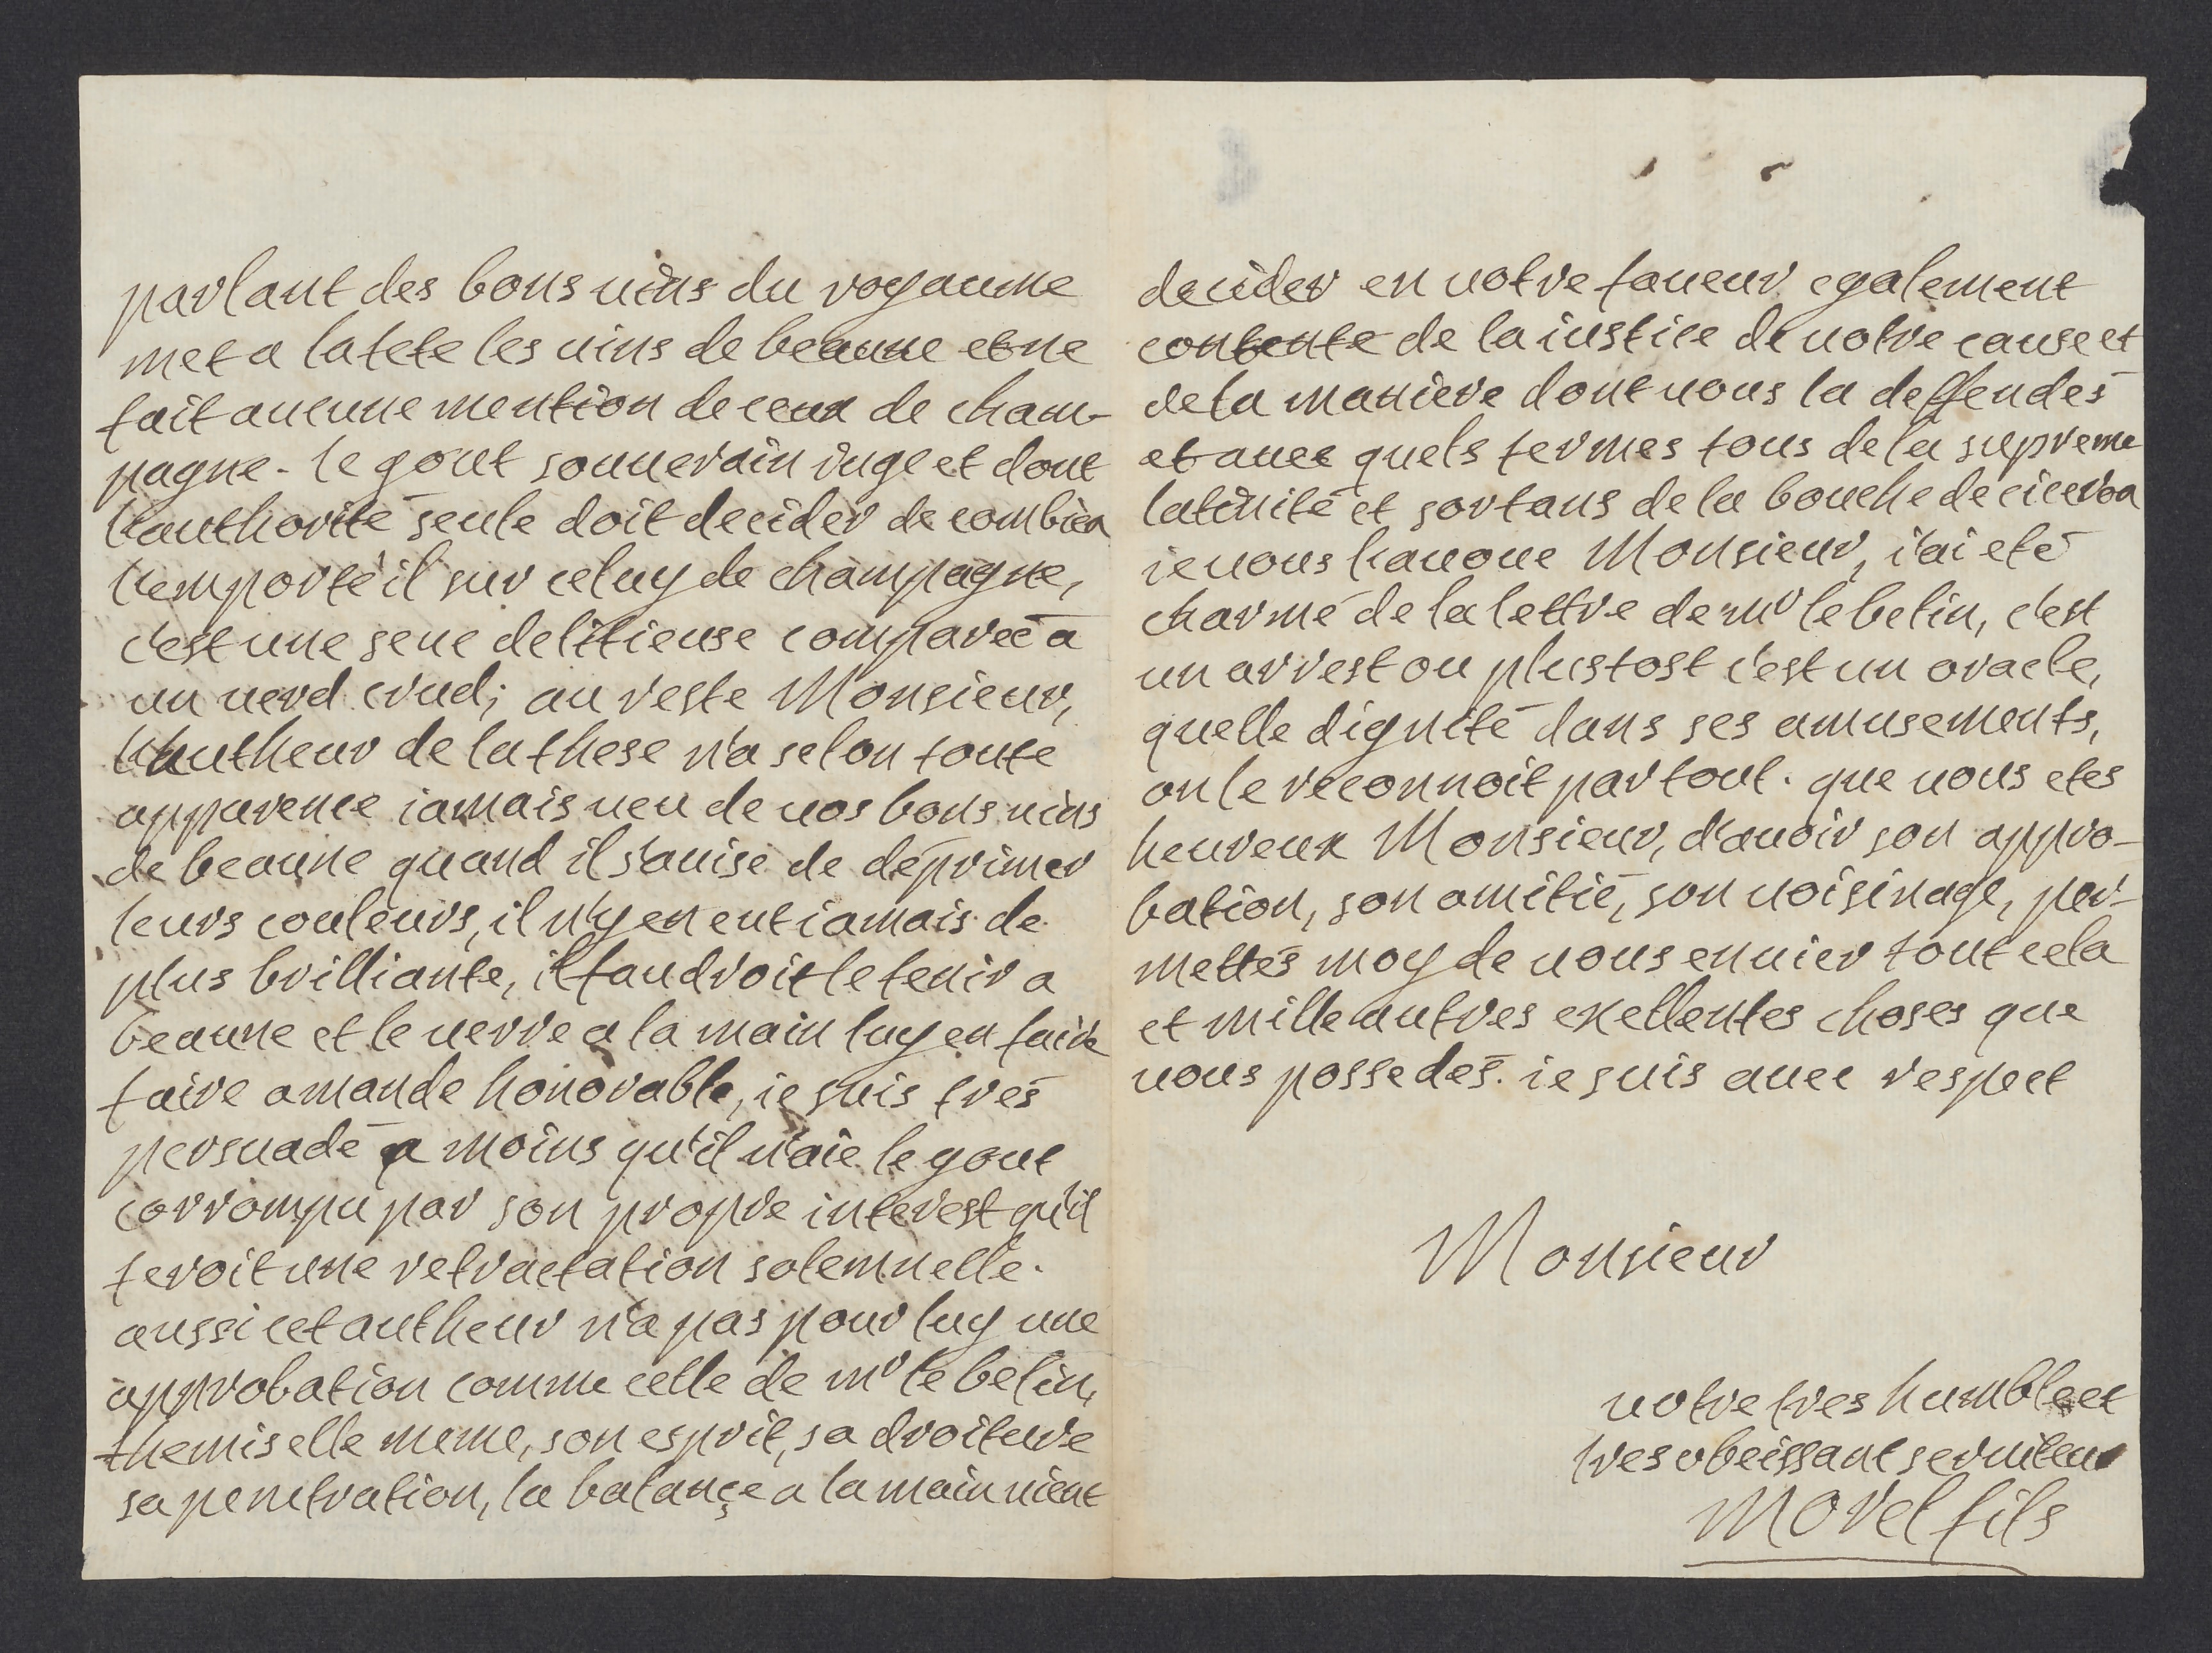 parlant des bons uins du royaume
met a la tete les uins de beaune et ne
fait aucune mention de ceux de cham-
pagne. le gout souuerain iuge et dont
l'authorité seule doit decider de combien
l'emporte'il sur celuy de champagne,
c'est une seue delitieuse compareé a
un uerd crud; au reste Monsieur,
l'autheur de la these n'a selon toute
apparence iamais ueu de uos bons uins
de beaune quand il s'auise de deprimer
leurs couleurs, il n'y en eut iamais de
plus brilliante, il faudroit le tenir a
beaune et le uerre a la main luy en faire
faire amande honorable, ie suis tres
persuadé a moins qu'il n'aie le gout
corrompu par son propre interest qu'il
feroit une retractation solemnelle.
aussi cet autheur n'a pas pour luy une
approbation comme celle de mr le belin,
themis elle meme, son esprit, sa droiture
sa penetration, la balançe a la main uient
decider en uotre faueur egalement
contente de la iustice de uotre cause et
de la maniere dont uous la deffendés
et auec quels termes tous de la supreme
latinité et sortans de la bouche de ciceron
ie uous l'auoue Monsieur, i'ai eté
charmé de la lettre de mr le belin, c'est
un arrest ou plustost c'est un oracle,
quelle dignité dans ses amusements,
on le reconnoit partout. que uous etes
heureux Monsieur, d'auoir son appro-
bation, son amitié, son uoisinage, per-
mettés moy de uous enuier tout cela
et mille autres exellentes choses que
uous possedés. ie suis auec respect
Monsieur
uotre tres humble et
tres obeissant seruiteur
Morel fils